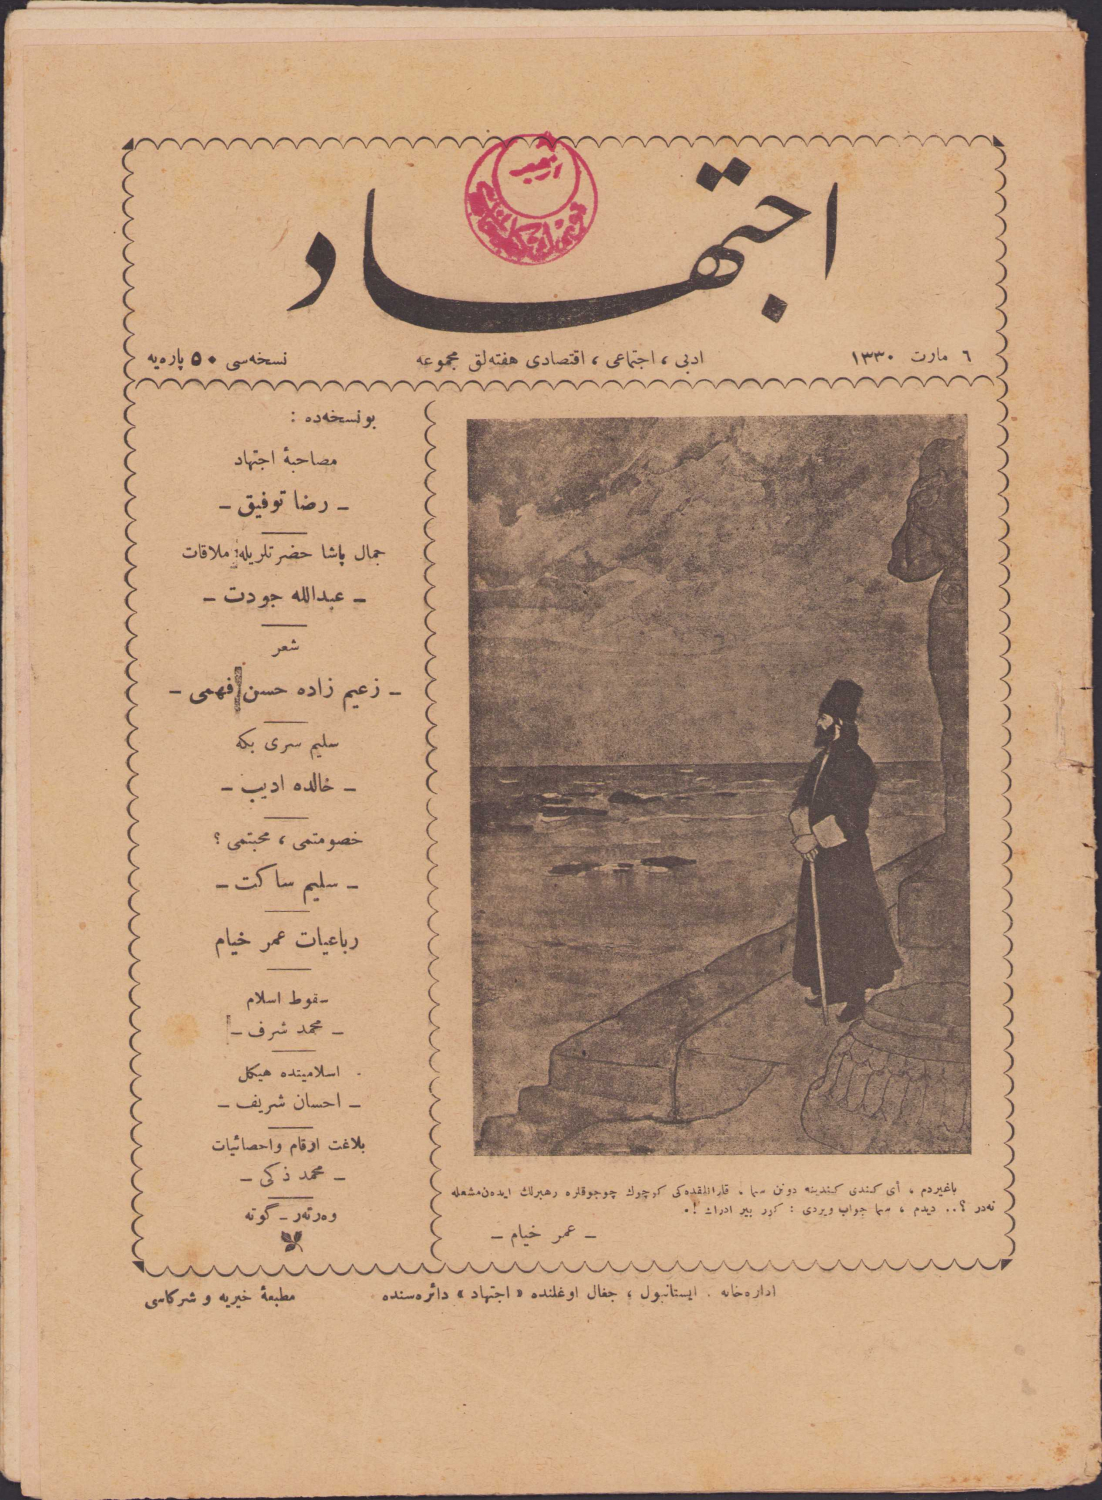 اجتهاد
٦ مارت ١٣٣٠
ادبی ، اجتماعی ، اقتصادی هفته‌لق مجموعه
نسخه‌سی ٥٠ پاره‌یه
بو نسخه‌ده :
مصاحبهٔ اجتهاد
ـ رضا توفیق ـ
جمال پاشا حضرتلریله ملاقات
ـ عبدالله جودت ـ
شعر
ـ زعیم زاده حسن فهمی ـ
سلیم سری بکه
ـ خالده ادیب ـ
خصومتمی ، محبتمی ؟
ـ سلیم ساکت ـ
رباعیات عمر خیام
سقوط اسلام
ـ محمد شرف ـ
اسلامیتده هیکل
ـ احسان شریف ـ
بلاغت ارقام واحصائیات
ـ محمد ذکی ـ
وه‌رته‌ر ـ گوته
باغیردم ، کندی کندینه دونن سما ، کوچوك چوجوقلره رهبرلك ایده‌ن مشعله
نه‌در ؟.. دیدم ، سما جواب ویردی : کور بیر ادراك !.
ـ عمر خیام ـ
اداره‌خانه . ایستانبول ، جغال اوغلنده « اجتهاد » دائره‌سنده
مطبعهٔ خیریه و شرکاسی